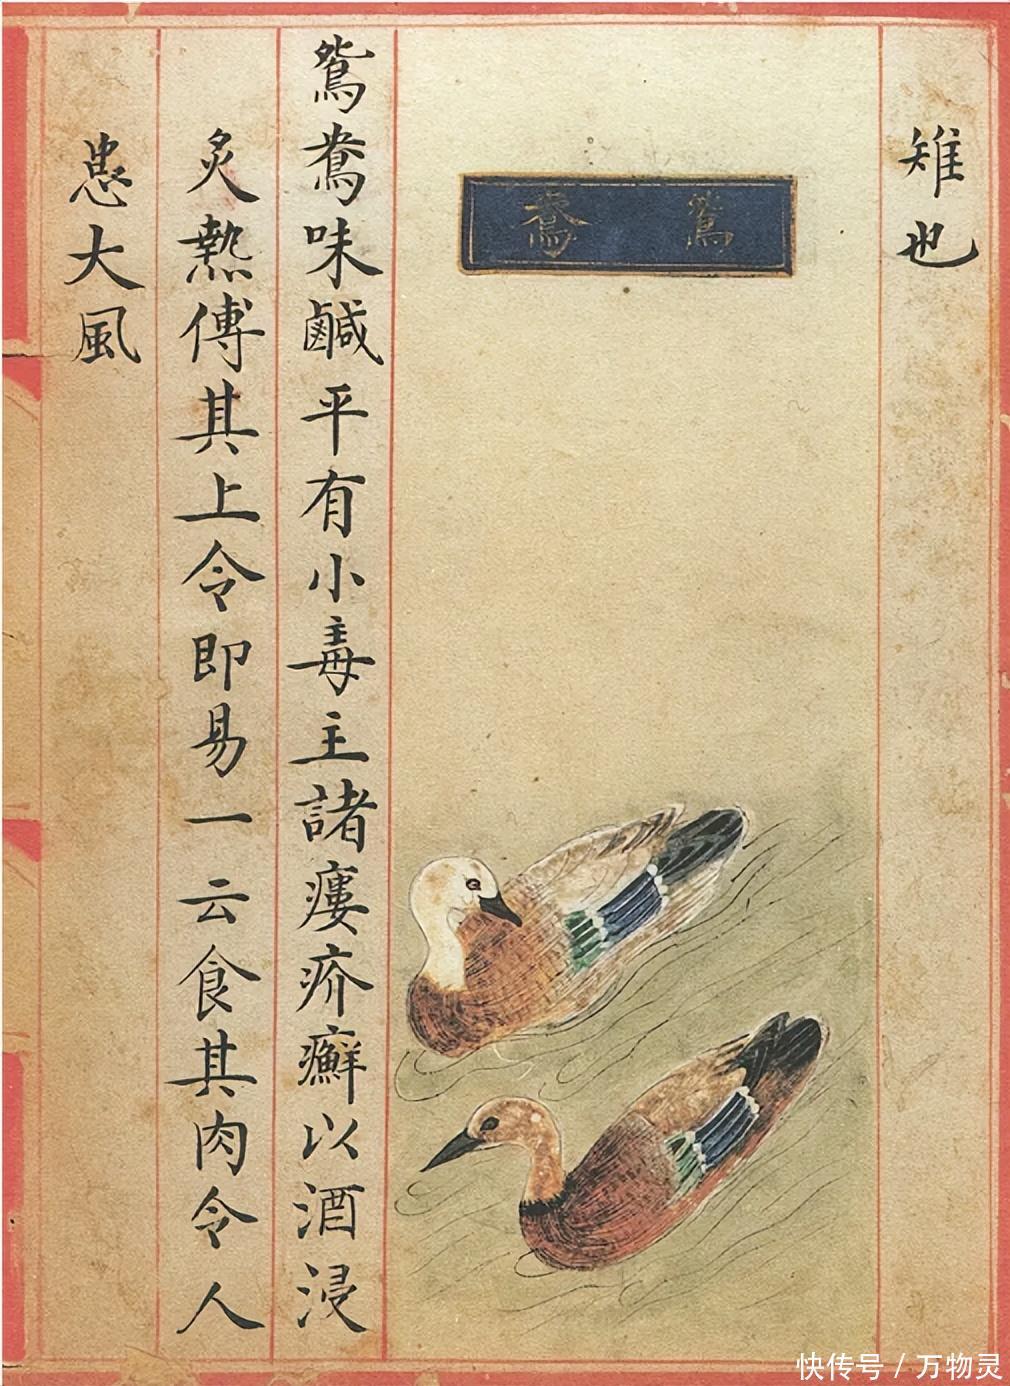 雉也
鴛鴦
鴛鴦味鹹平有小毒主諸瘻疥癬以酒浸
炙熱傅其上令即易一云食其肉令人
患大風
快传号 / 万物灵